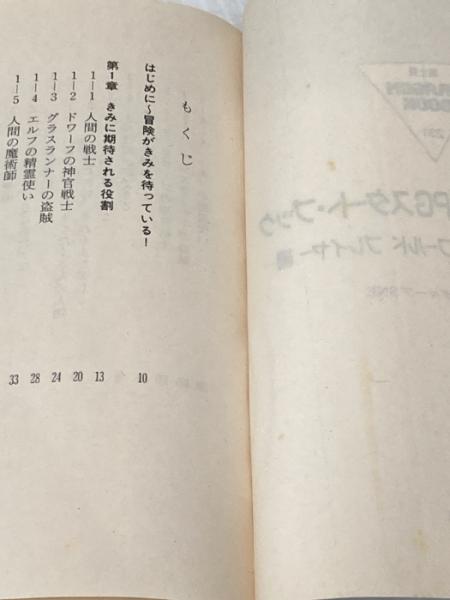 もくじ
はじめに～冒険がきみを待っている！ 10
第1章 きみに期待される役割
1―1 人間の戦士 13
1―2 ドワーフの神官戦士 20
1―3 グラスランナーの盗賊 24
1―4 エルフの精霊使い 28
1―5 人間の魔術師 33
富士見
DRAGON
BOOK
PGスタート・ブック
ワールド プレイヤー編
グループSNE